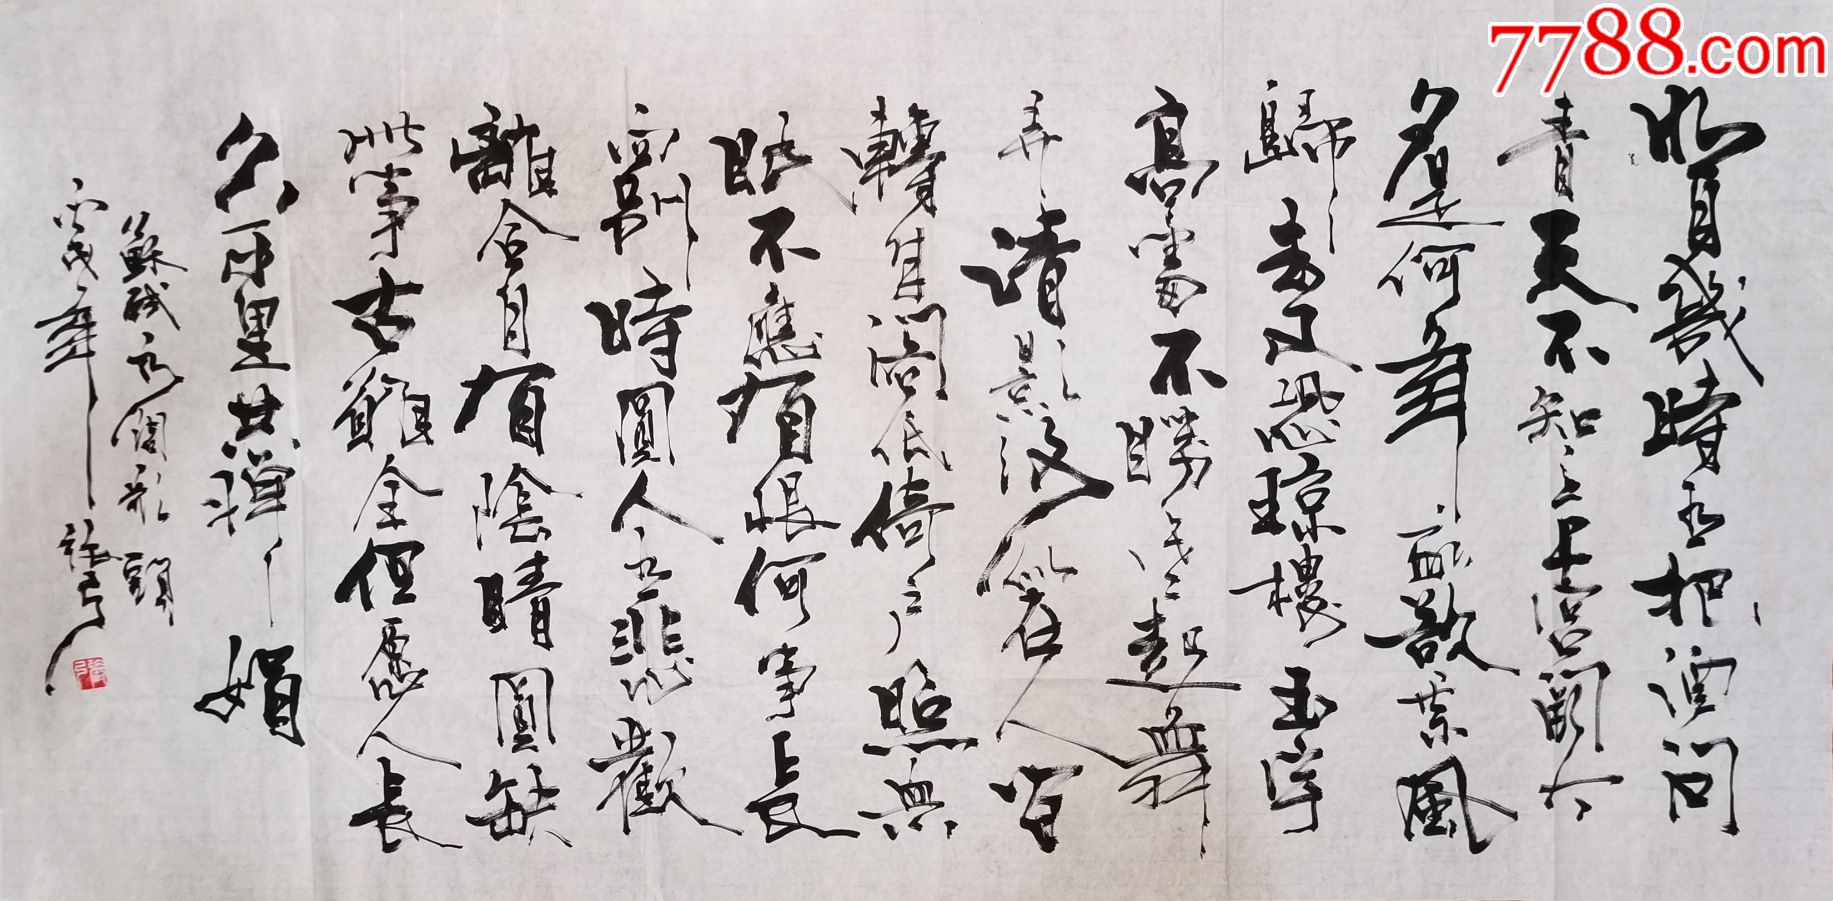 7788.com
明月幾時有把酒問
青天不知天上宮闕今
夕是何年我欲乘風
歸去又恐琼樓玉宇
高處不勝寒起舞
弄清影何似在人間
轉朱閣低綺户照無
眠不應有恨何事長
向别時圓人有悲歡
離合月有陰晴圓缺
此事古難全但愿人長
久千里共嬋娟
蘇軾水調歌頭
丙戌年